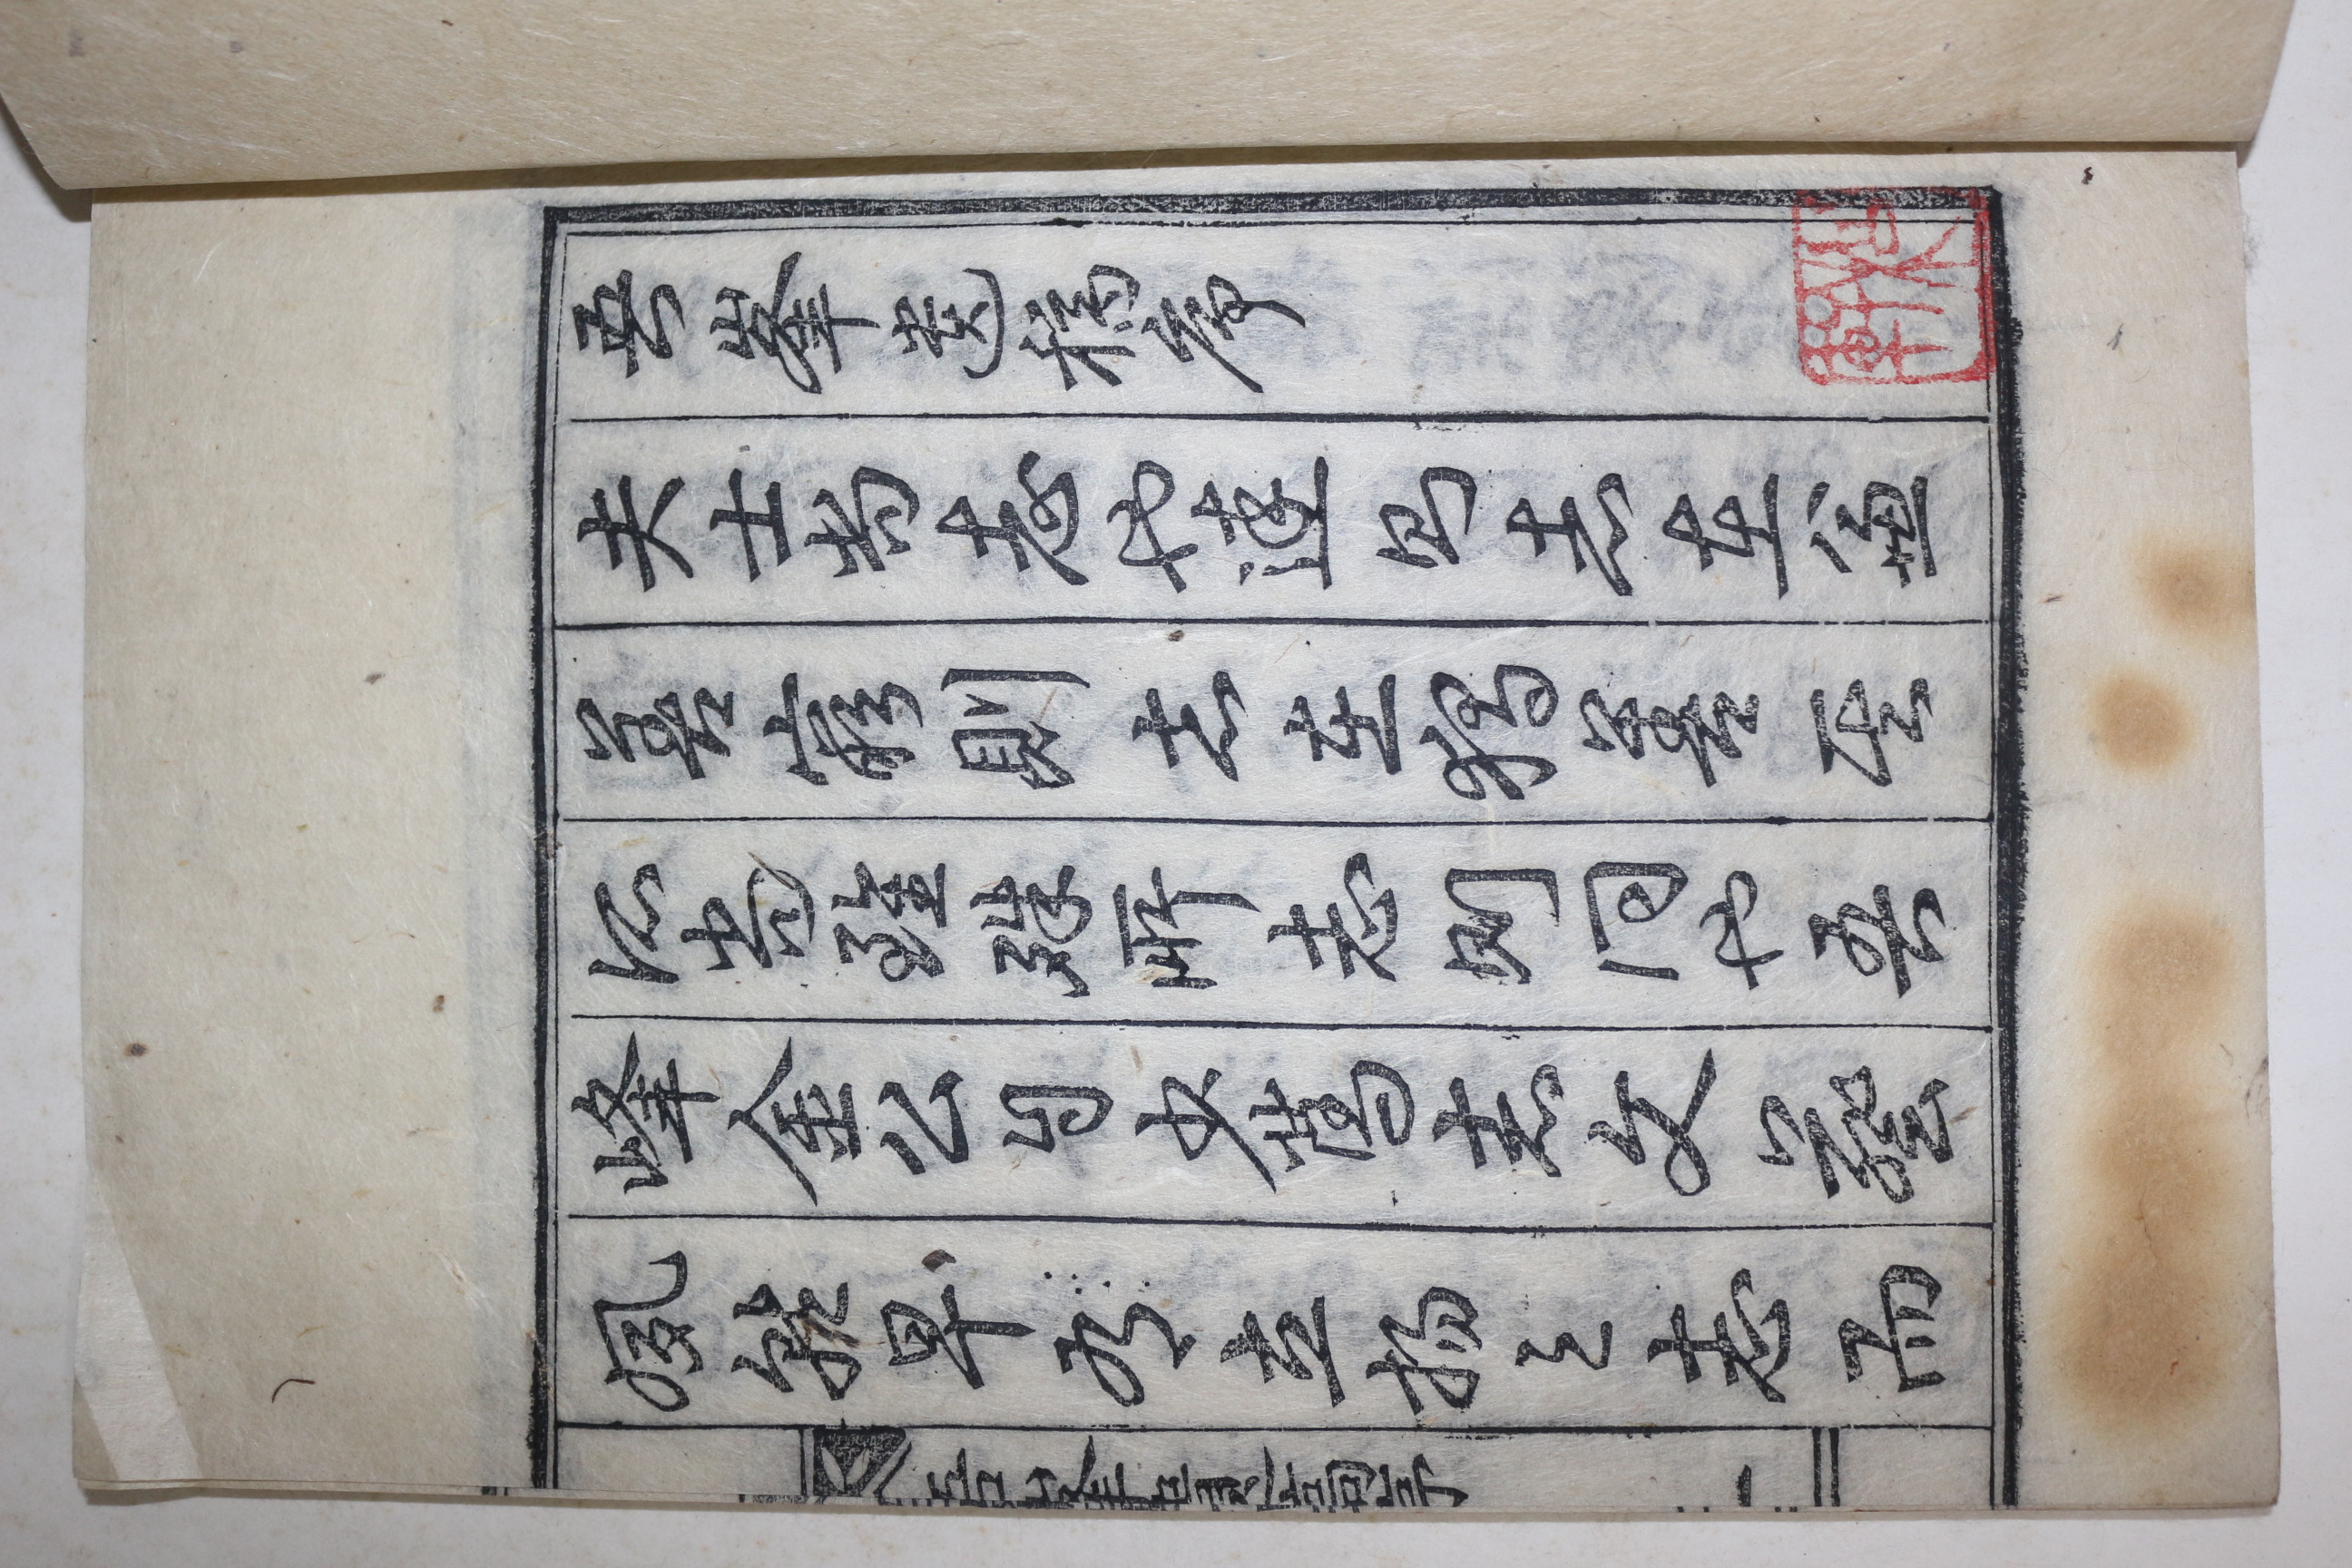 吾峯遺稿序
夫士尚志也達則志在兼
善窮則志在獨善其
所尚雖殊所志則同也吾
峰金公自少篤志文藝
夙就早有立揚之志而